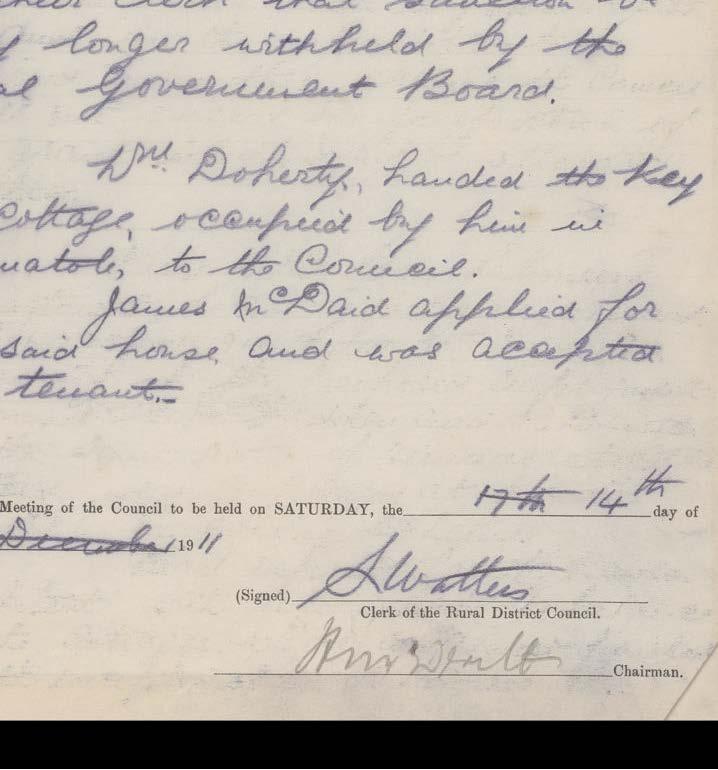 their Clerk that sanction be
longer withheld by the
Government Board.
Wm. Doherty, handed the Key
Cottage, occupied by him in
to the Council.
James McDaid applied for
said house and was accepted
tenant.
Meeting of the Council to be held on SATURDAY, the 17th 14th day of
December 1911
(Signed) S Watters
Clerk of the Rural District Council.
Chairman.